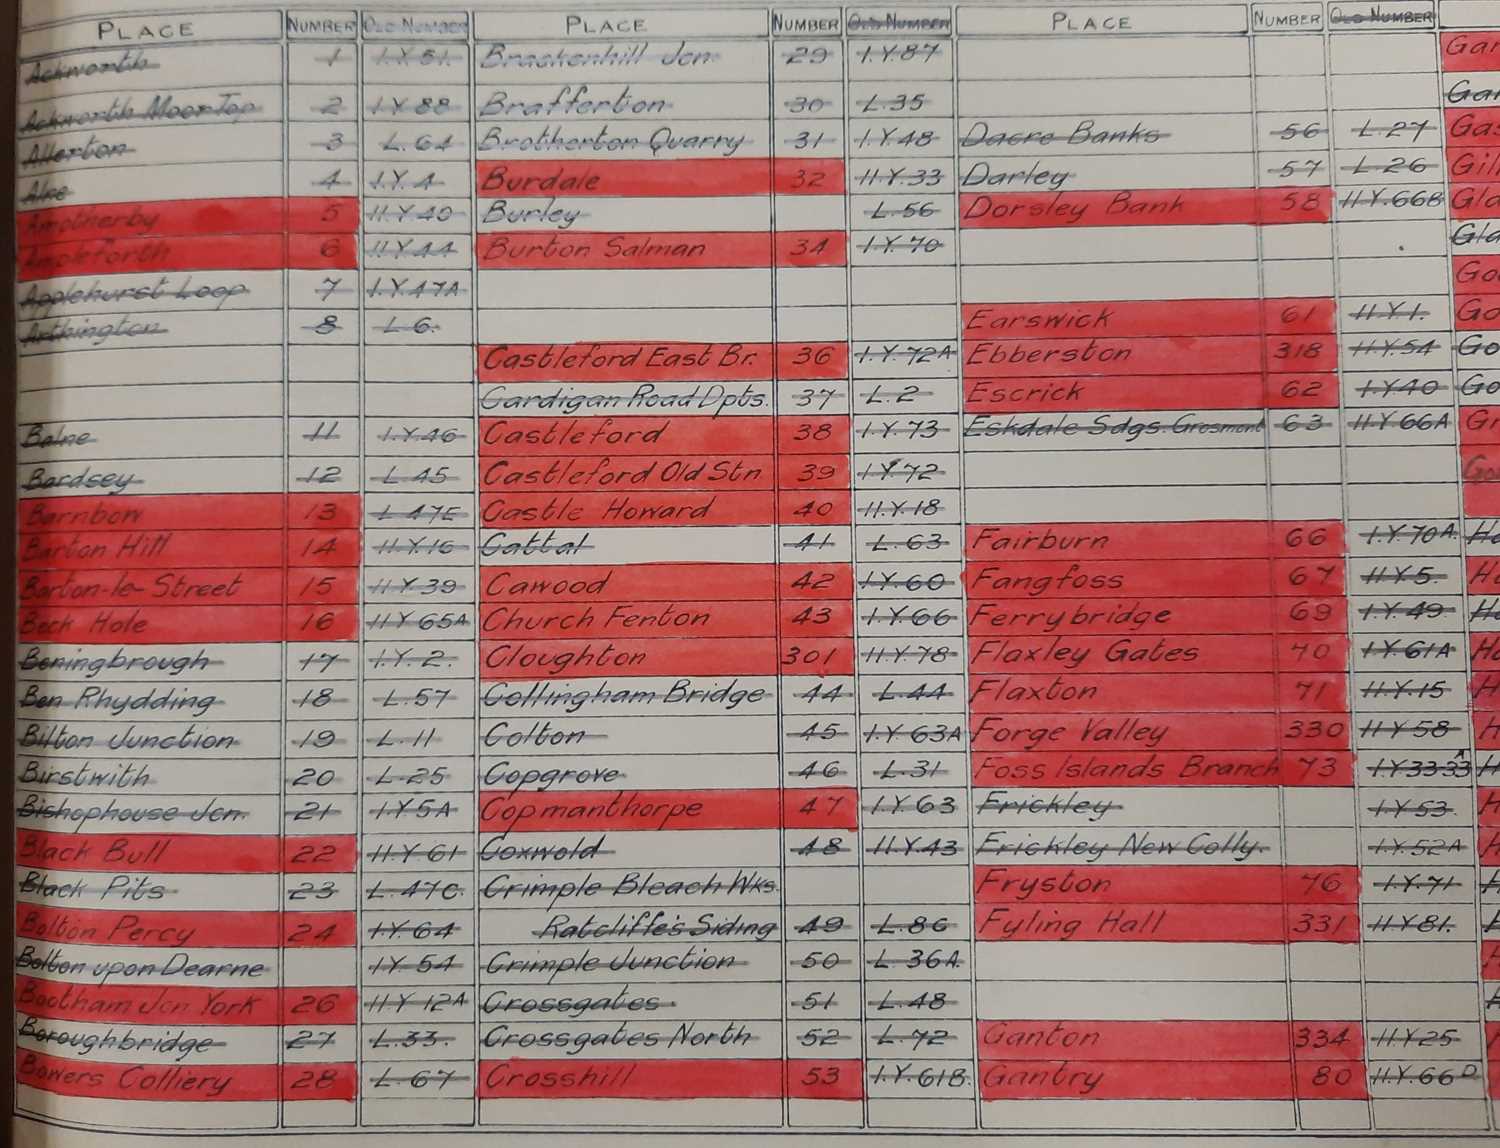 PLACE NUMBER OLD NUMBER PLACE NUMBER OLD NUMBER PLACE NUMBER OLD NUMBER
Ackworth 1 I.Y.51.
Ackworth Moor Top 2 I.Y.88
Allerton 3 L.64
Alne 4 I.Y.4
Amotherby 5 II.Y.40
Ampleforth 6 II.Y.44
Applehurst Loop 7 I.Y.47A
Arthington 8 L.6.
Balne 11 I.Y.46
Bardsey 12 L.45
Barnbow 13 L.47E
Barton Hill 14 II.Y.16
Barton-le-Street 15 II.Y.39
Beck Hole 16 II.Y.65A
Beningbrough 17 I.Y.2.
Ben Rhydding 18 L.57
Bilton Junction 19 L.11
Birstwith 20 L.25
Bishophouse Jcn. 21 I.Y.5A
Black Bull 22 II.Y.61
Black Pits 23 L.47C.
Bolton Percy 24 I.Y.64
Bolton upon Dearne I.Y.54
Bootham Jcn York 26 II.Y.12A
Boroughbridge 27 L.33.
Bowers Colliery 28 L.67
Brackenhill Jcn. 29 I.Y.87
Brafferton 30 L.35
Brotherton Quarry 31 I.Y.48
Burdale 32 II.Y.33
Burley L.56
Burton Salman 34 I.Y.70
Castleford East Br. 36 I.Y.72A
Cardigan Road Dpts. 37 L.2
Castleford 38 I.Y.73
Castleford Old Stn 39 I.Y.72
Castle Howard 40 II.Y.18
Cattal 41 L.63
Cawood 42 I.Y.60
Church Fenton 43 I.Y.66
Cloughton 301 II.Y.78
Collingham Bridge 44 L.44
Colton 45 I.Y.63A
Copgrove 46 L.31
Copmanthorpe 47 I.Y.63
Coxwold 48 II.Y.43
Crimple Bleach Wks.
Ratcliffe's Siding 49 L.86
Crimple Junction 50 L.36A.
Crossgates 51 L.48
Crossgates North 52 L.72
Crosshill 53 I.Y.61B.
Dacre Banks 56 L.27
Darley 57 L.26
Dorsley Bank 58 II.Y.66B
Earswick 61 II.Y.1.
Ebberston 318 II.Y.54
Escrick 62 I.Y.40
Eskdale Sdgs. Grosmont 63 II.Y.66A
Fairburn 66 I.Y.70A.
Fangfoss 67 II.Y.5.
Ferrybridge 69 I.Y.49.
Flaxley Gates 70 I.Y.61A
Flaxton 71 II.Y.15
Forge Valley 330 II.Y.58
Foss Islands Branch 73 I.Y.33 33A
Frickley I.Y.53.
Frickley New Colly. I.Y.52A
Fryston 76 I.Y.71
Fyling Hall 331 II.Y.81.
Ganton 334 II.Y.25
Gantry 80 II.Y.66D